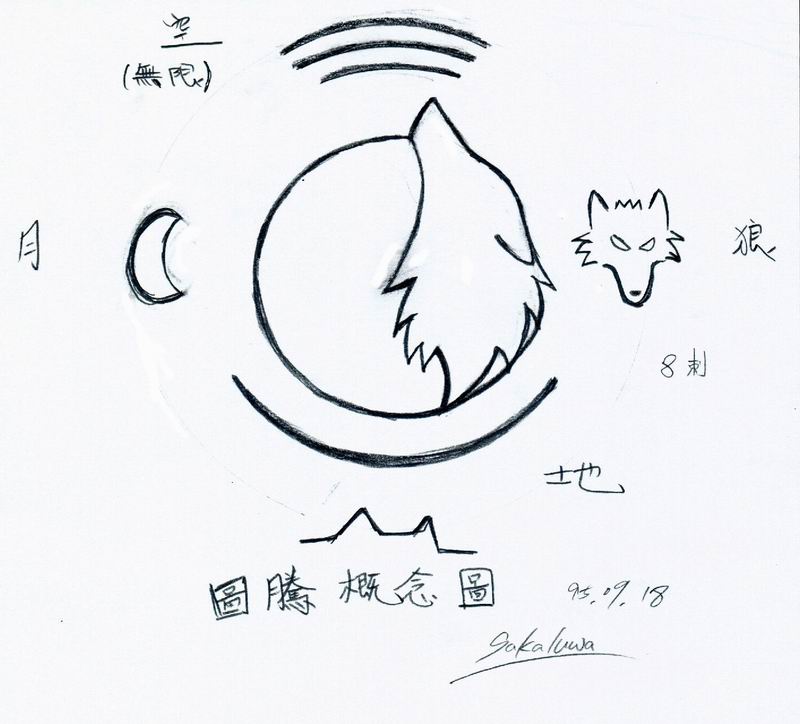 空
(無限)
月
狼
8刺
地
圖騰概念圖
95.09.18
Sakaluwa